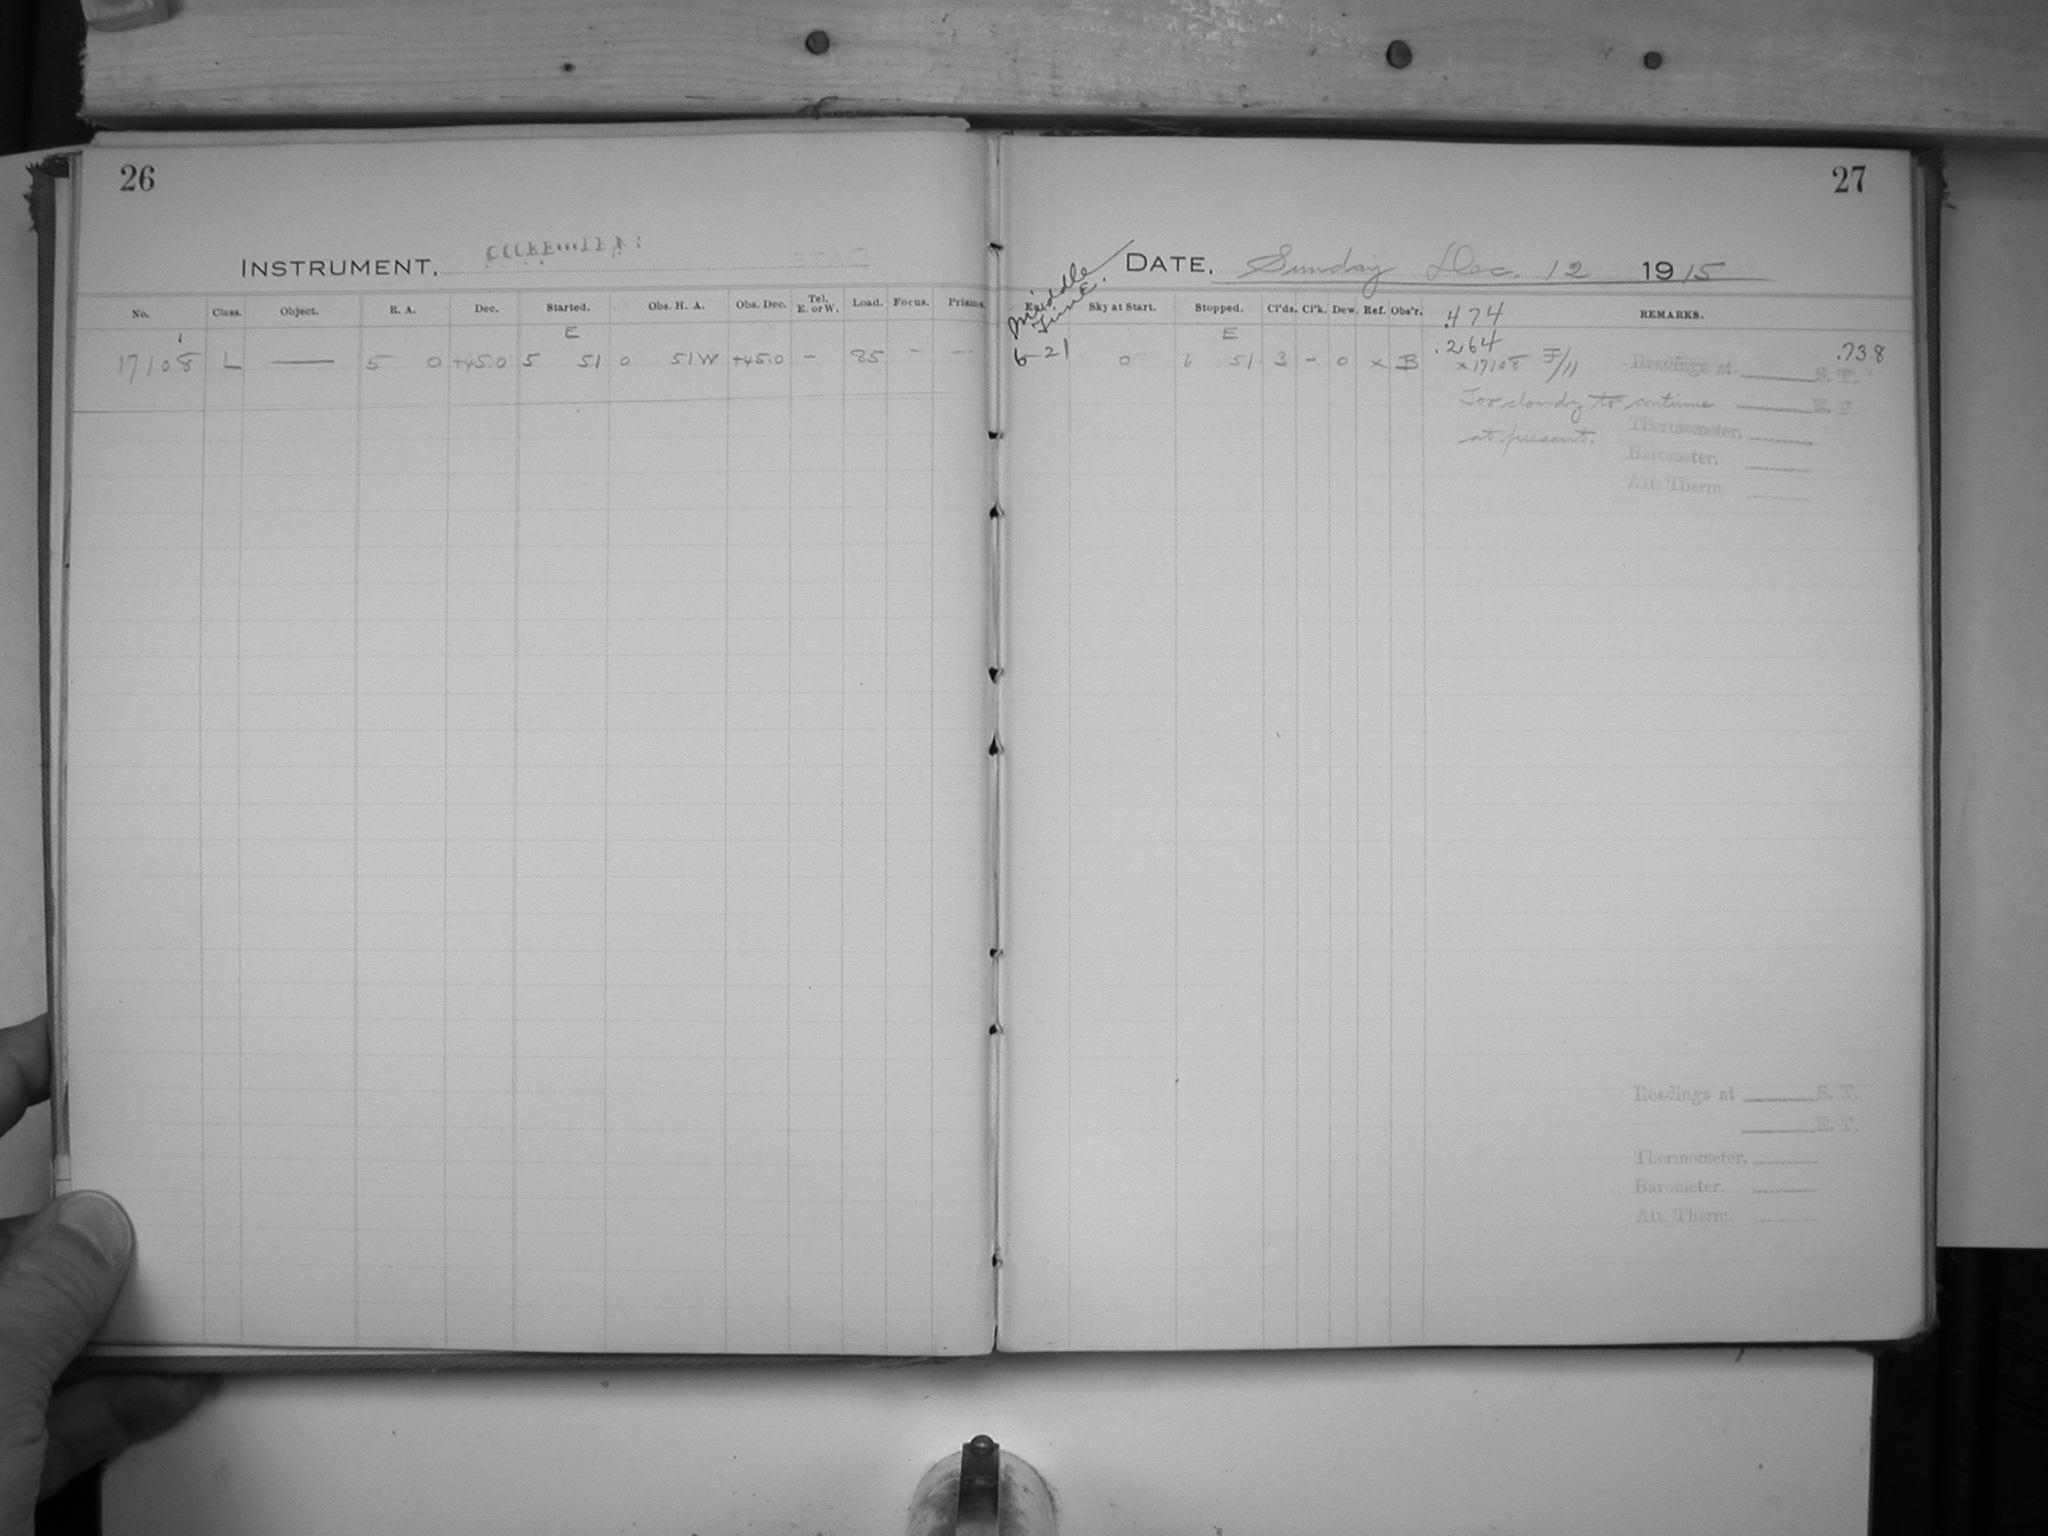 26
INSTRUMENT.
No. Class. Object. R. A. Dec. Started. Obs. H. A. Obs. Dec. Tel. E. or W. Load. Focus. Prisms.
1 E
17108 L — 5 0 +45.0 5 51 0 51W +45.0 – 85 – —
27
DATE. Sunday Dec. 12 1915
Middle
Time.
Sky at Start. Stopped. Cl'ds. Cl'k. Dew. Ref. Obs'r. .474 REMARKS.
E .264 .738
6 21 0 6 51 3 – 0 x B x 17108 F/11 Readings at S. T.
Too cloudy to continue E. T.
at present. Thermometer.
Barometer.
Att. Therm.
Readings at S. T.
E. T.
Thermometer.
Barometer.
Att. Therm.